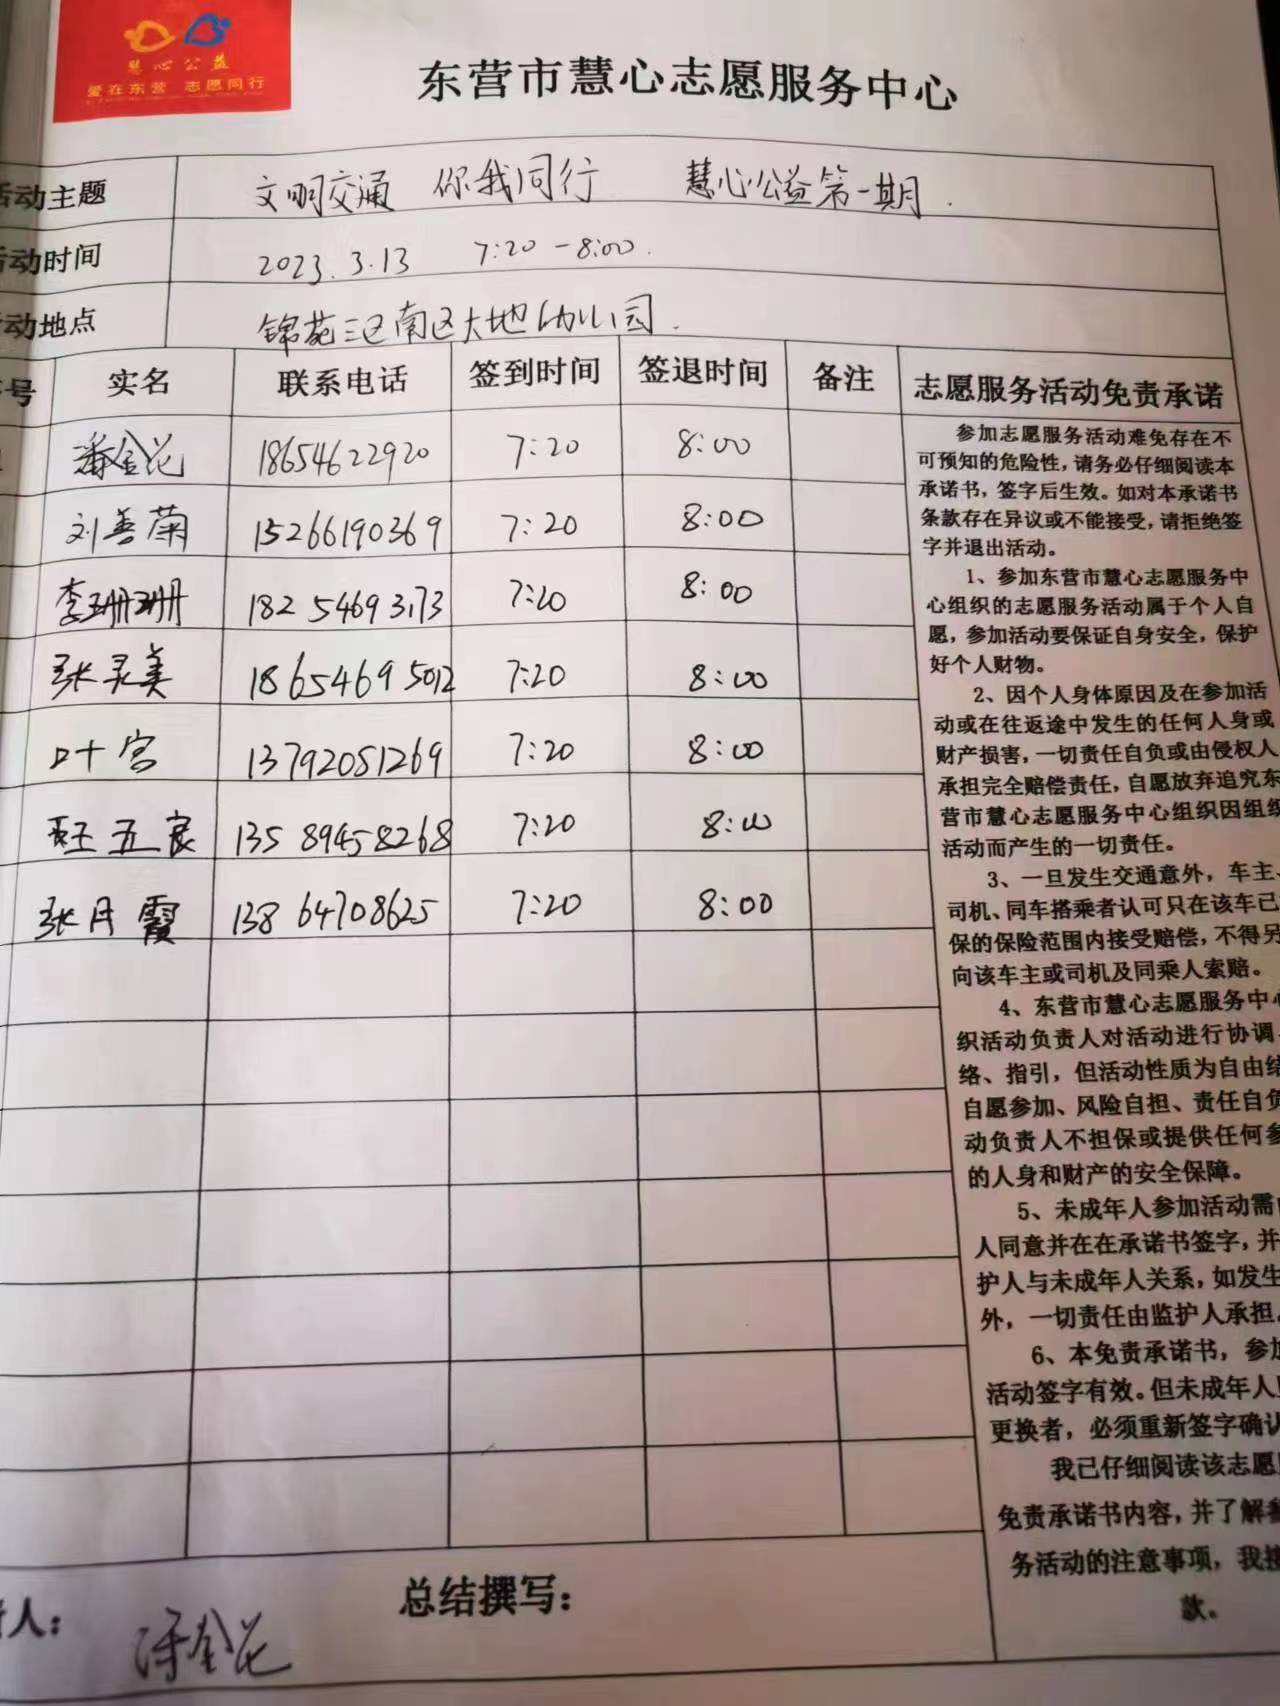 慧心公益
爱在东营 志愿同行
东营市慧心志愿服务中心
活动主题 文明交通 你我同行 慧心公益第一期.
活动时间 2023.3.13 7:20-8:00.
活动地点 锦苑三区南区大地幼儿园.
号 实名 联系电话 签到时间 签退时间 备注 志愿服务活动免责承诺
潘金花 18654622920 7:20 8:00
刘善菊 15266190369 7:20 8:00
李珊珊 18254693173 7:20 8:00
张灵美 18654695012 7:20 8:00
叶宫 13792051269 7:20 8:00
13589458268 7:20 8:00
张月霞 13864708625 7:20 8:00
参加志愿服务活动难免存在不
可预知的危险性，请务必仔细阅读本
承诺书，签字后生效。如对本承诺书
条款存在异议或不能接受，请拒绝签
字并退出活动。
1、参加东营市慧心志愿服务中
心组织的志愿服务活动属于个人自
愿，参加活动要保证自身安全，保护
好个人财物。
2、因个人身体原因及在参加活
动或在往返途中发生的任何人身或
财产损害，一切责任自负或由侵权人
承担完全赔偿责任，自愿放弃追究东
营市慧心志愿服务中心组织因组织
活动而产生的一切责任。
3、一旦发生交通意外，车主、
司机、同车搭乘者认可只在该车已
保的保险范围内接受赔偿，不得另
向该车主或司机及同乘人索赔。
4、东营市慧心志愿服务中心
织活动负责人对活动进行协调、
络、指引，但活动性质为自由结
自愿参加、风险自担、责任自负
动负责人不担保或提供任何参
的人身和财产的安全保障。
5、未成年人参加活动需
人同意并在在承诺书签字，并
护人与未成年人关系，如发生
外，一切责任由监护人承担。
6、本免责承诺书，参加
活动签字有效。但未成年人
更换者，必须重新签字确认
我已仔细阅读该志愿
免责承诺书内容，并了解参
务活动的注意事项，我接
款。
人： 潘金花 总结撰写：